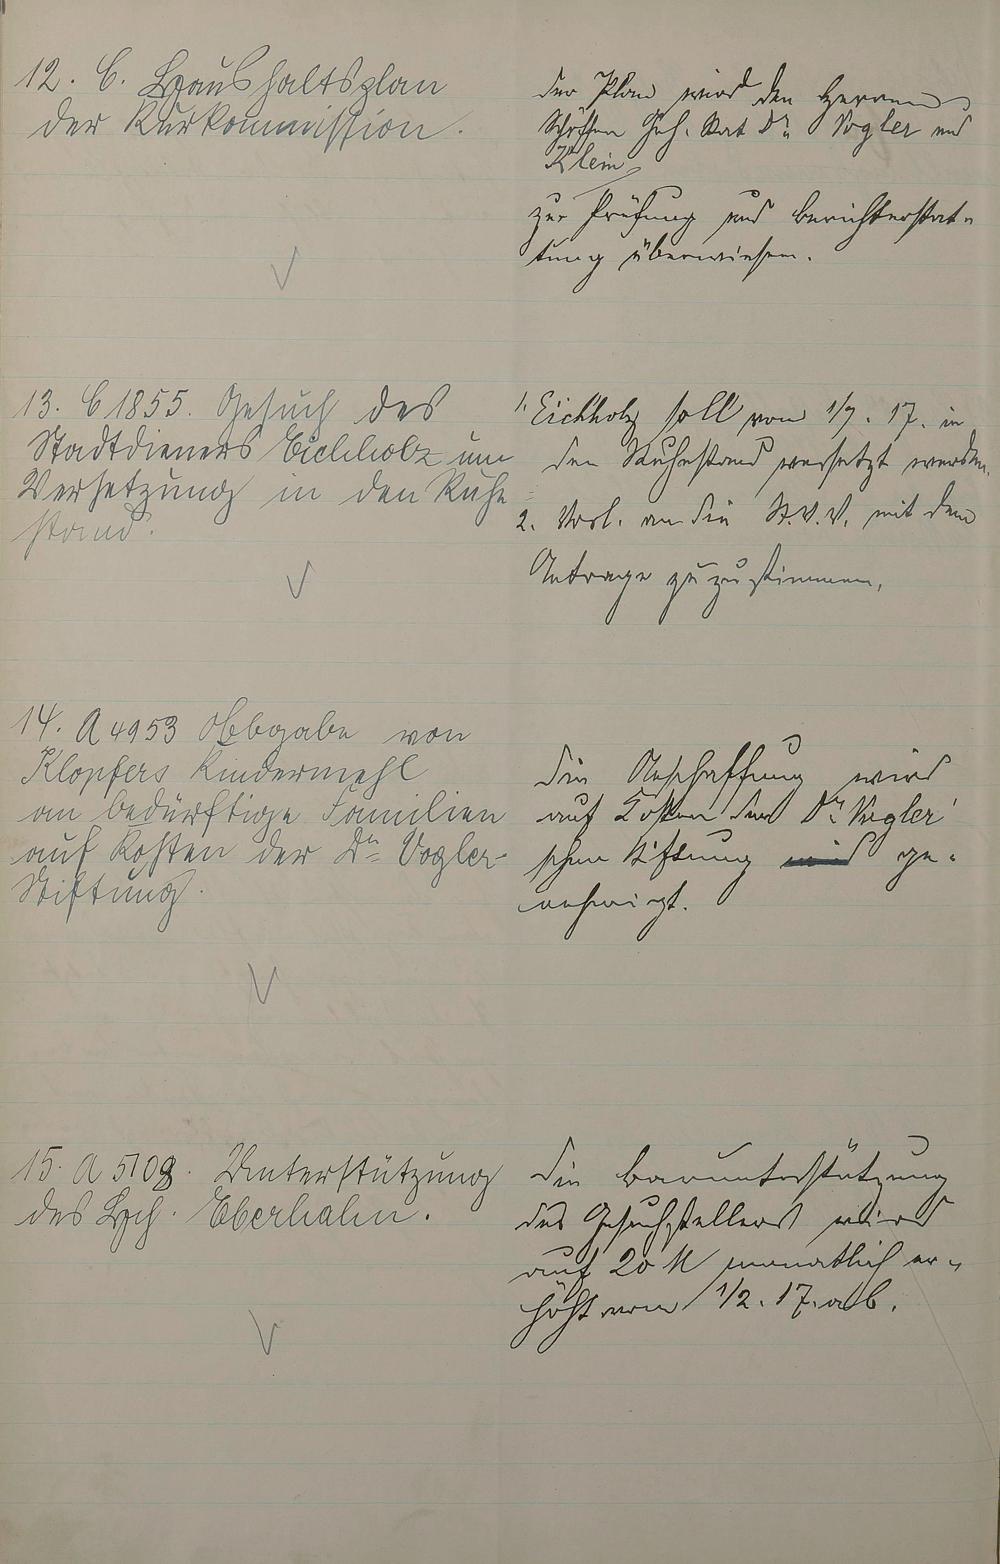 12. C. Haushaltsplan
der Kurkommission.
der Plan wird den Herren
Schöffen Geh. Rat Dr. Vogler und
Klein
zur Prüfung und Berichterstat-
tung überwiesen.
13. C 1855. Gesuch des
Stadtdieners Eichholz um
Versetzung in den Ruhe-
stand.
1. Eichholz soll vom 1/7. 17. in
den Ruhestand versetzt werden.
2. Vorl. an die St.V.V. mit dem
Antrage zuzustimmen.
14. A 4953 Abgabe von
Klopfers Kindermehl
an bedürftige Familien
auf Kosten der Dr. Vogler-
Stiftung.
die Anschaffung wird
auf Kosten der Dr. Vogler'
schen Stiftung ge-
nehmigt.
15. A 5108. Unterstützung
des Hch. Eberhahn.
die Barunterstützung
des Gesuchstellers wird
auf 20 M monatlich er-
höht vom 1/2. 17. ab.